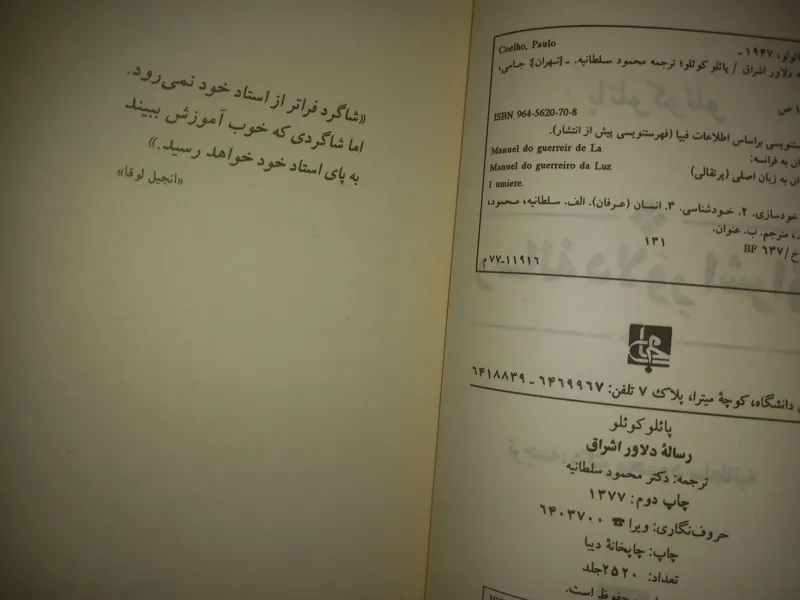 «شاگرد فراتر از استاد خود نمی‌رود.
اما شاگردی که خوب آموزش ببیند
به پای استاد خود خواهد رسید.»
«انجیل لوقا»
Coelho, Paulo
۱۹۴۷ ـ
دلاور اشراق / پائلو کوئلو؛ ترجمه محمود سلطانیه. ـ [تهران]: جامی،
ص
ISBN 964-5620-70-8
براساس اطلاعات فیپا (فهرستنویسی پیش از انتشار).
به فرانسه:
Manuel do guerreir de La
به زبان اصلی (پرتقالی)
Manuel do guerreiro da Luz
1 umiere.
خودسازی. ۲. خودشناسی. ۳. انسان (عرفان). الف. سلطانیه، محمود،
مترجم. ب. عنوان.
۱۳۱
BF ۶۳۷/خ
۷۷-۱۱۹۱۶م
دانشگاه، کوچهٔ میترا، پلاک ۷ تلفن: ۶۴۶۹۹۶۷ ـ ۶۴۱۸۸۳۹
پائلو کوئلو
رسالهٔ دلاور اشراق
ترجمه: دکتر محمود سلطانیه
چاپ دوم: ۱۳۷۷
حروف‌نگاری: ویرا ☎ ۶۴۰۳۷۰۰
چاپ: چاپخانهٔ دیبا
تعداد: ۲۵۲۰جلد
محفوظ است.